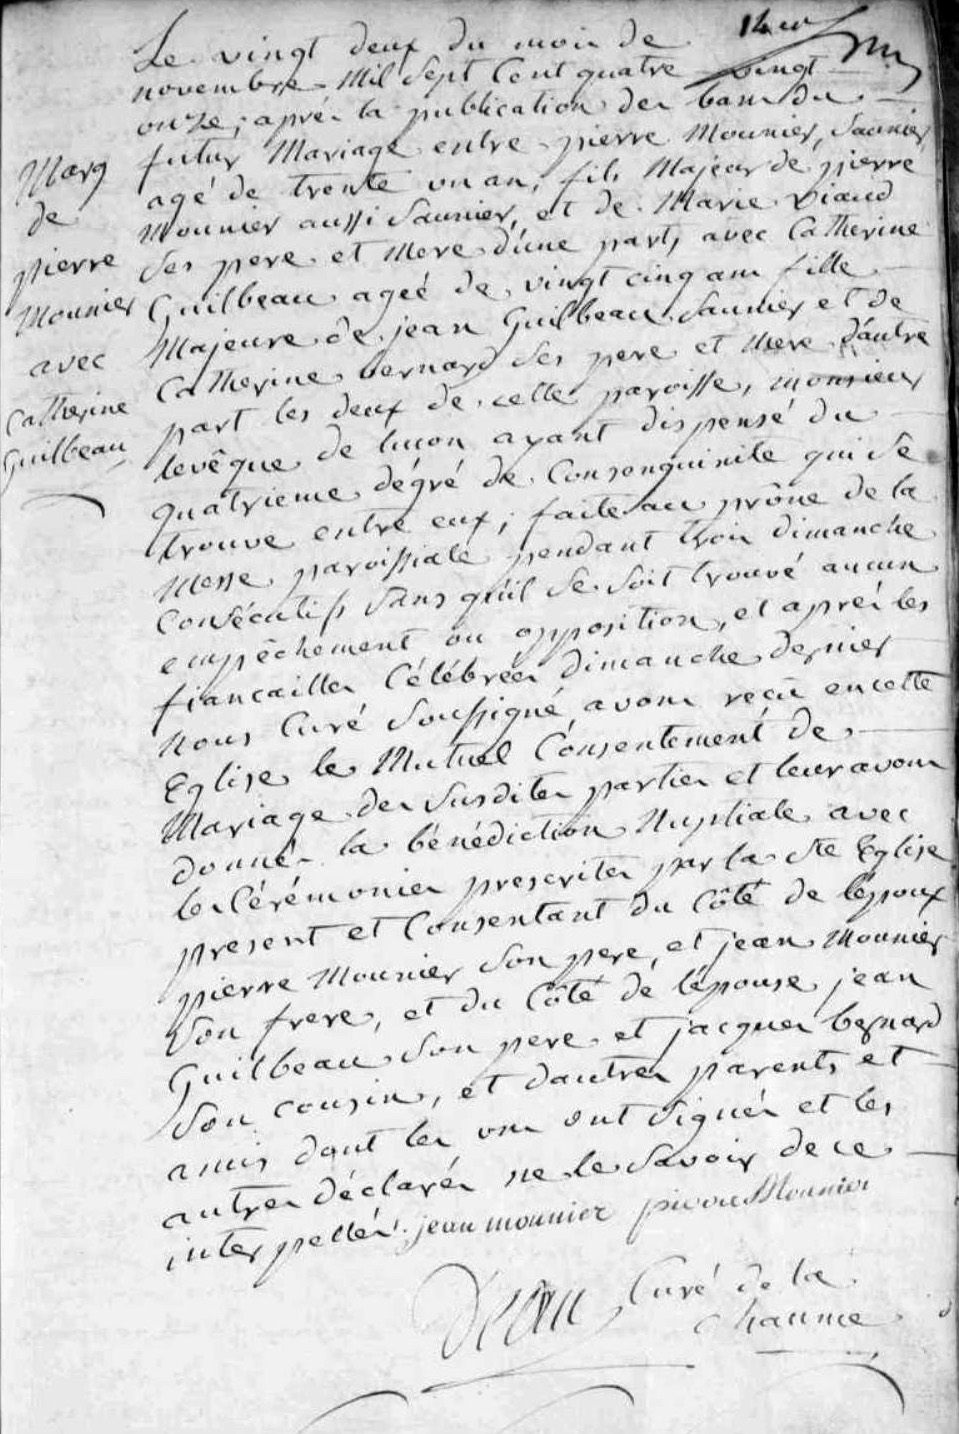 14eme
Le vingt deux du mois de
novembre Mil Sept Cent quatre vingt
onze, aprés la publication des bans du
futur Mariage entre pierre Mounier, Saunier,
agé de trente un an, fils Majeur de pierre
Mounier aussi Saunier, et de Marie Viaud
Ses pere et Mere d'une part, avec Catherine
Guilbeau ageé de vingt cinq ans fille
Majeure de jean Guilbeau Saunier et de
Catherine bernard Ses pere et Mere d'autre
part les deux de cette paroisse, monsieur
levêque de luçon ayant dispensé du
quatrieme dégré de Consenguinite qui Se
trouve entre eux; faite au prône de la
Messe paroissiale pendant trois dimanche
Consécutifs Sans qu'il Se Soit trouvé aucun
empêchement ou opposition, et aprés les
fiancailles Célébrées dimanche dernier
Nous Curé Soussigné, avons reçû en cette
Eglise le Mutuel Consentement de
Mariage des Susdites parties et leur avons
donnés la bénédiction Nuptiale avec
les Cérémonies prescrites par la Ste Eglise
présent et Consentant du Côté de lépoux
pierre Mounier Son pere, et jean Mounier
Son frere, et du Côté de lépouse jean
Guilbeau Son pere et jacques bernard
Son cousin, et dautres parents et
amis dont les uns ont Signés et les
autres déclarés ne le Savoir de ce
interpellés. jean mounier pierre Mounier
Curé de la
Chaume
Marg
de
pierre
Mounier
avec
Catherine
Guilbeau